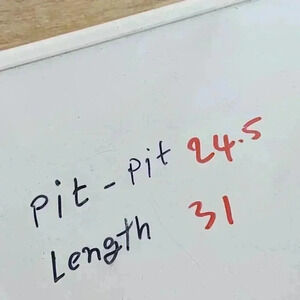 Pit - Pit 24.5
Length 31